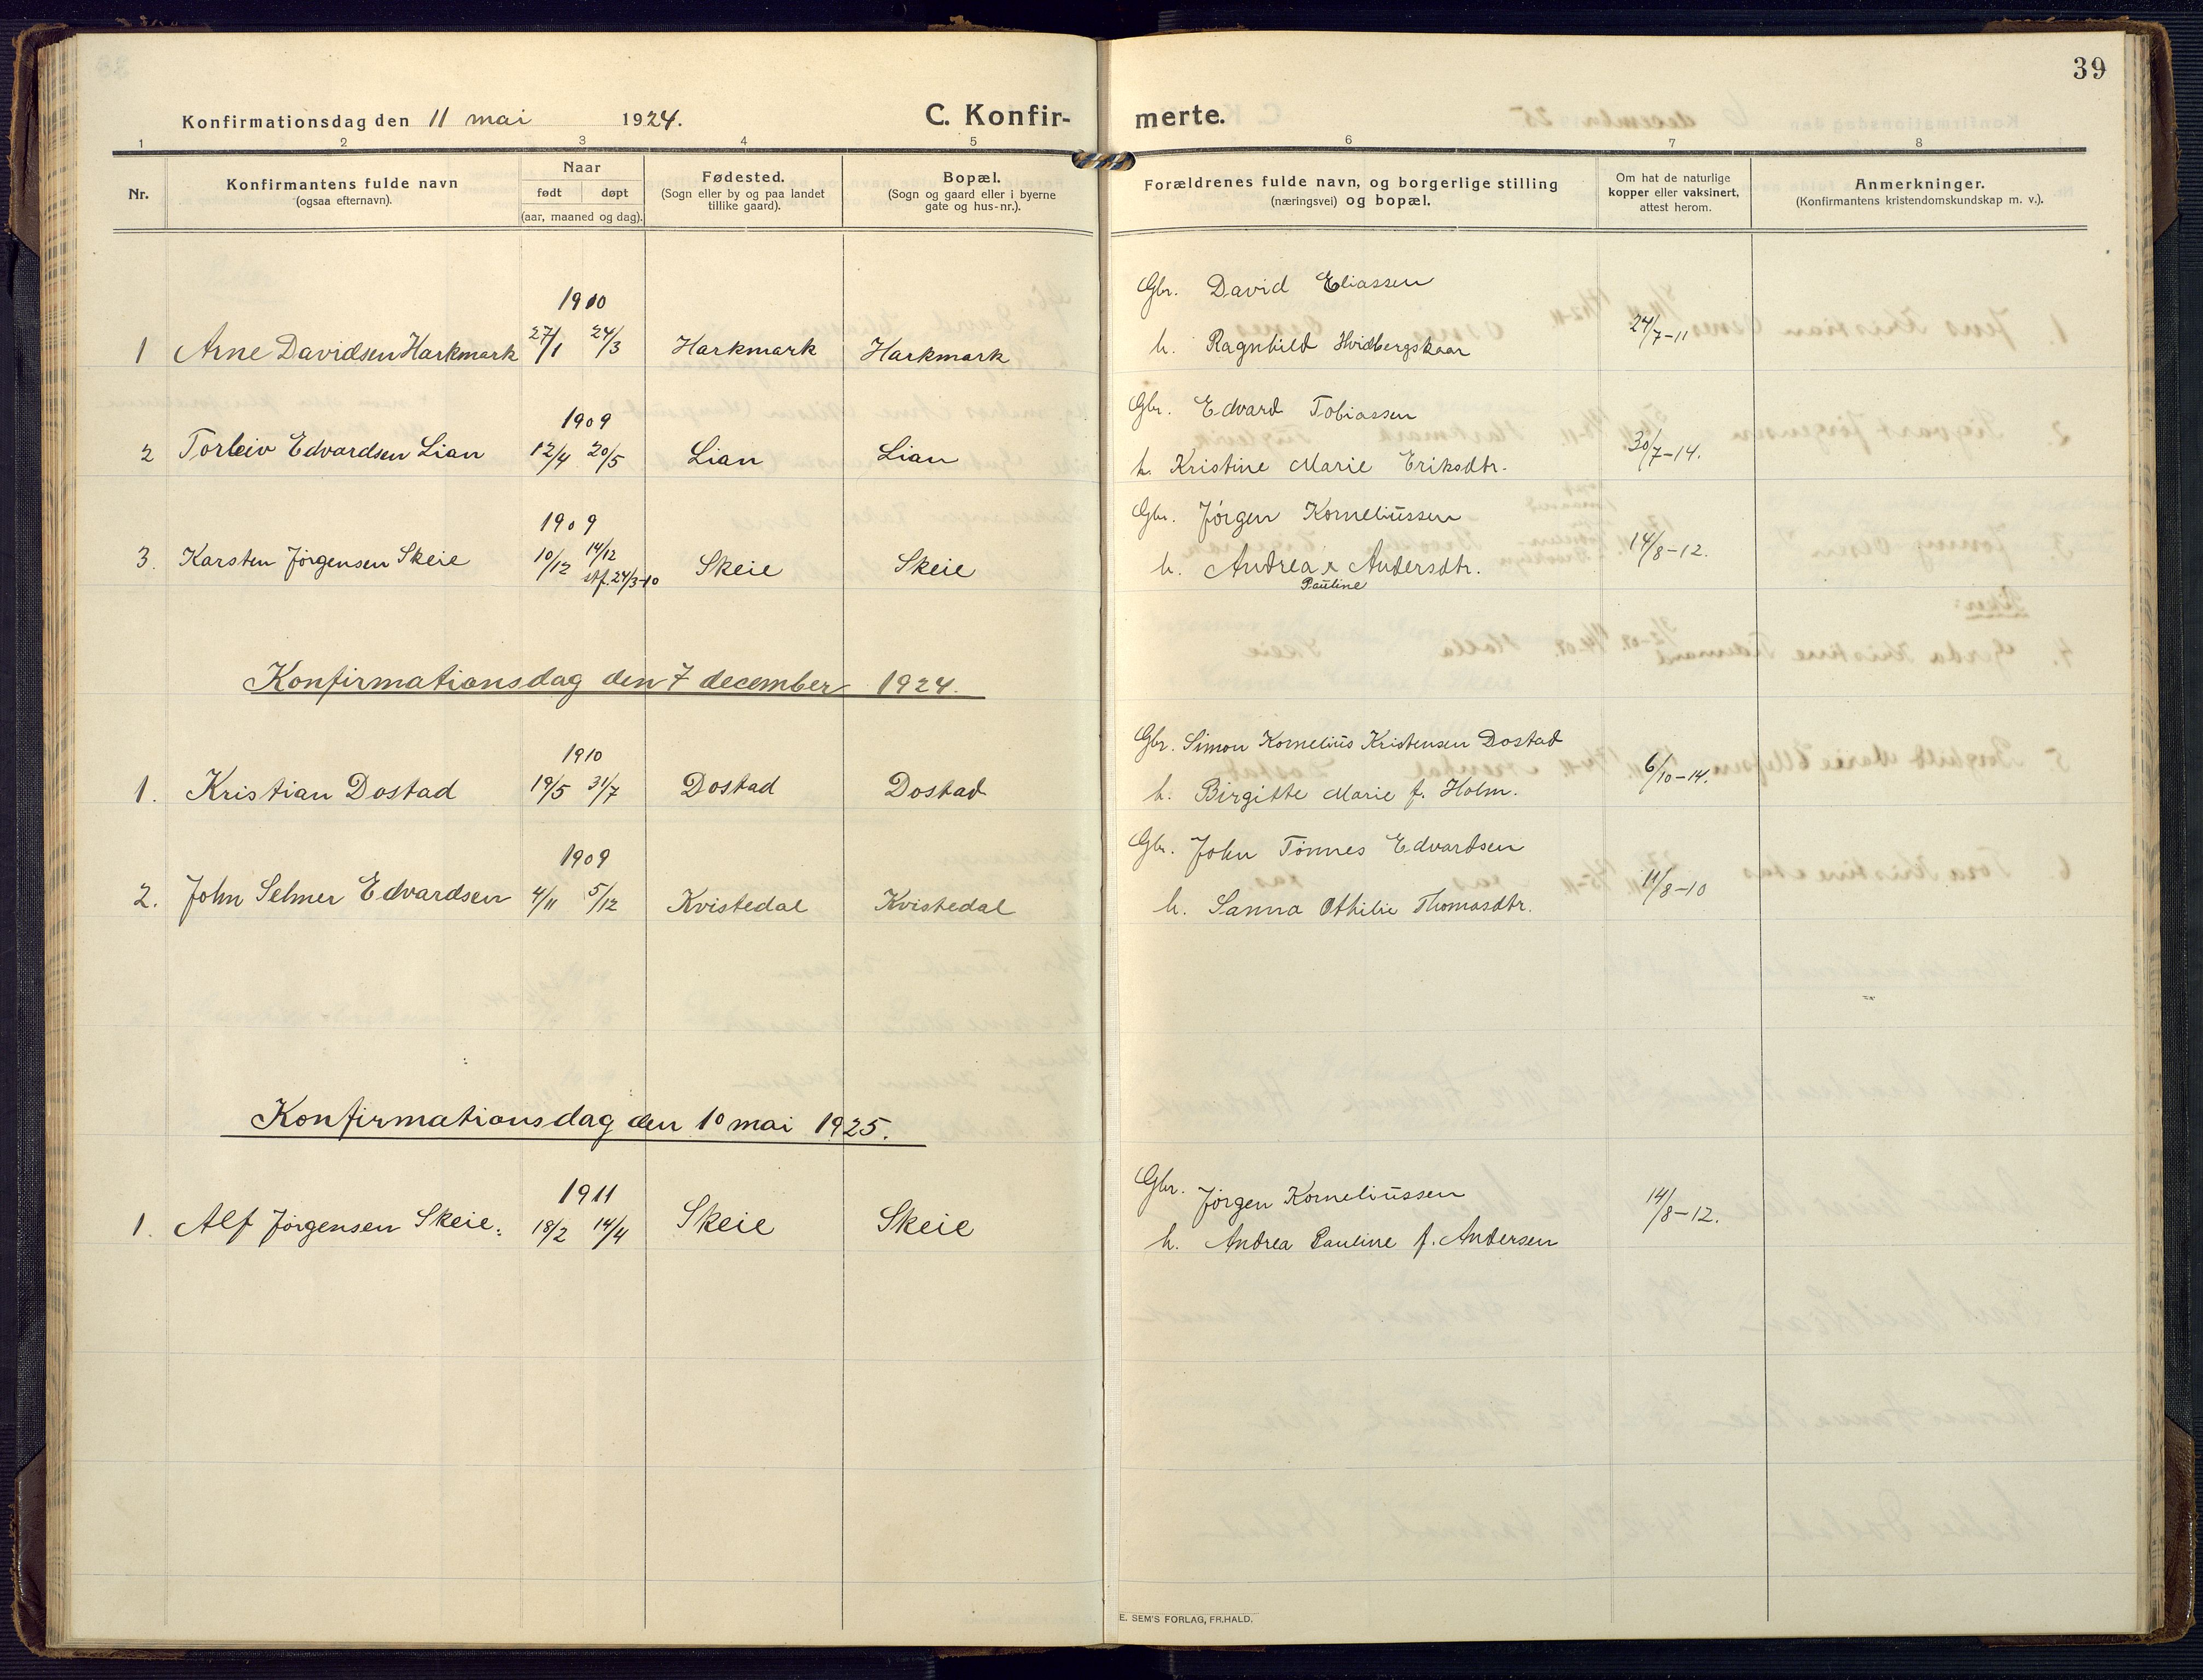 39
Konfirmationsdag den 11 mai 1924. C. Konfir- merte.
1 2 3 4 5 6 7 8
Nr.
Konfirmantens fulde navn
(ogsaa efternavn).
Naar
født døpt
(aar, maaned og dag).
Fødested.
(Sogn eller by og paa landet
tillike gaard).
Bopæl.
(Sogn og gaard eller i byerne
gate og hus-nr.).
Forældrenes fulde navn, og borgerlige stilling
(næringsvei) og bopæl.
Om hat de naturlige
kopper eller vaksinert,
attest herom.
Anmerkninger.
(Konfirmantens kristendomskundskap m. v.).
1910 Gbr. David Eliassen
1 Arne Davidsen Harkmark 27/1 24/3 Harkmark Harkmark h. Ragnhild Hvidbergskaar 24/7-11
1909 Gbr. Edvard Tobiassen
2 Torleiv Edvardsen Lian 12/4 20/5 Lian Lian h. Kristine Marie Eriksdtr. 30/7-14.
1909 Gbr. Jørgen Korneliussen
3. Karsten Jørgensen Skeie 10/12 14/12 Skeie Skeie h. Andrea x Andersdtr. 14/8-12.
stf. 24/3-10 Pauline
Konfirmationsdag den 7 december 1924.
1910 Gbr. Simon Kornelius Kristensen Dostad
1. Kristian Dostad 19/5 31/7 Dostad Dostad h. Birgitte Marie f. Holm. 6/10-14.
1909 Gbr. John Tønnes Edvardsen
2. John Selmer Edvardsen 4/11 5/12 Kvistedal Kvistedal h. Sanna Othilie Thomasdtr. 11/8-10
Konfirmationsdag den 10 mai 1925.
1911 Gbr. Jørgen Korneliussen
1. Alf Jørgensen Skeie. 18/2 14/4 Skeie Skeie h. Andrea Pauline f. Andersen 14/8-12.
E. SEM'S FORLAG, FR.HALD.